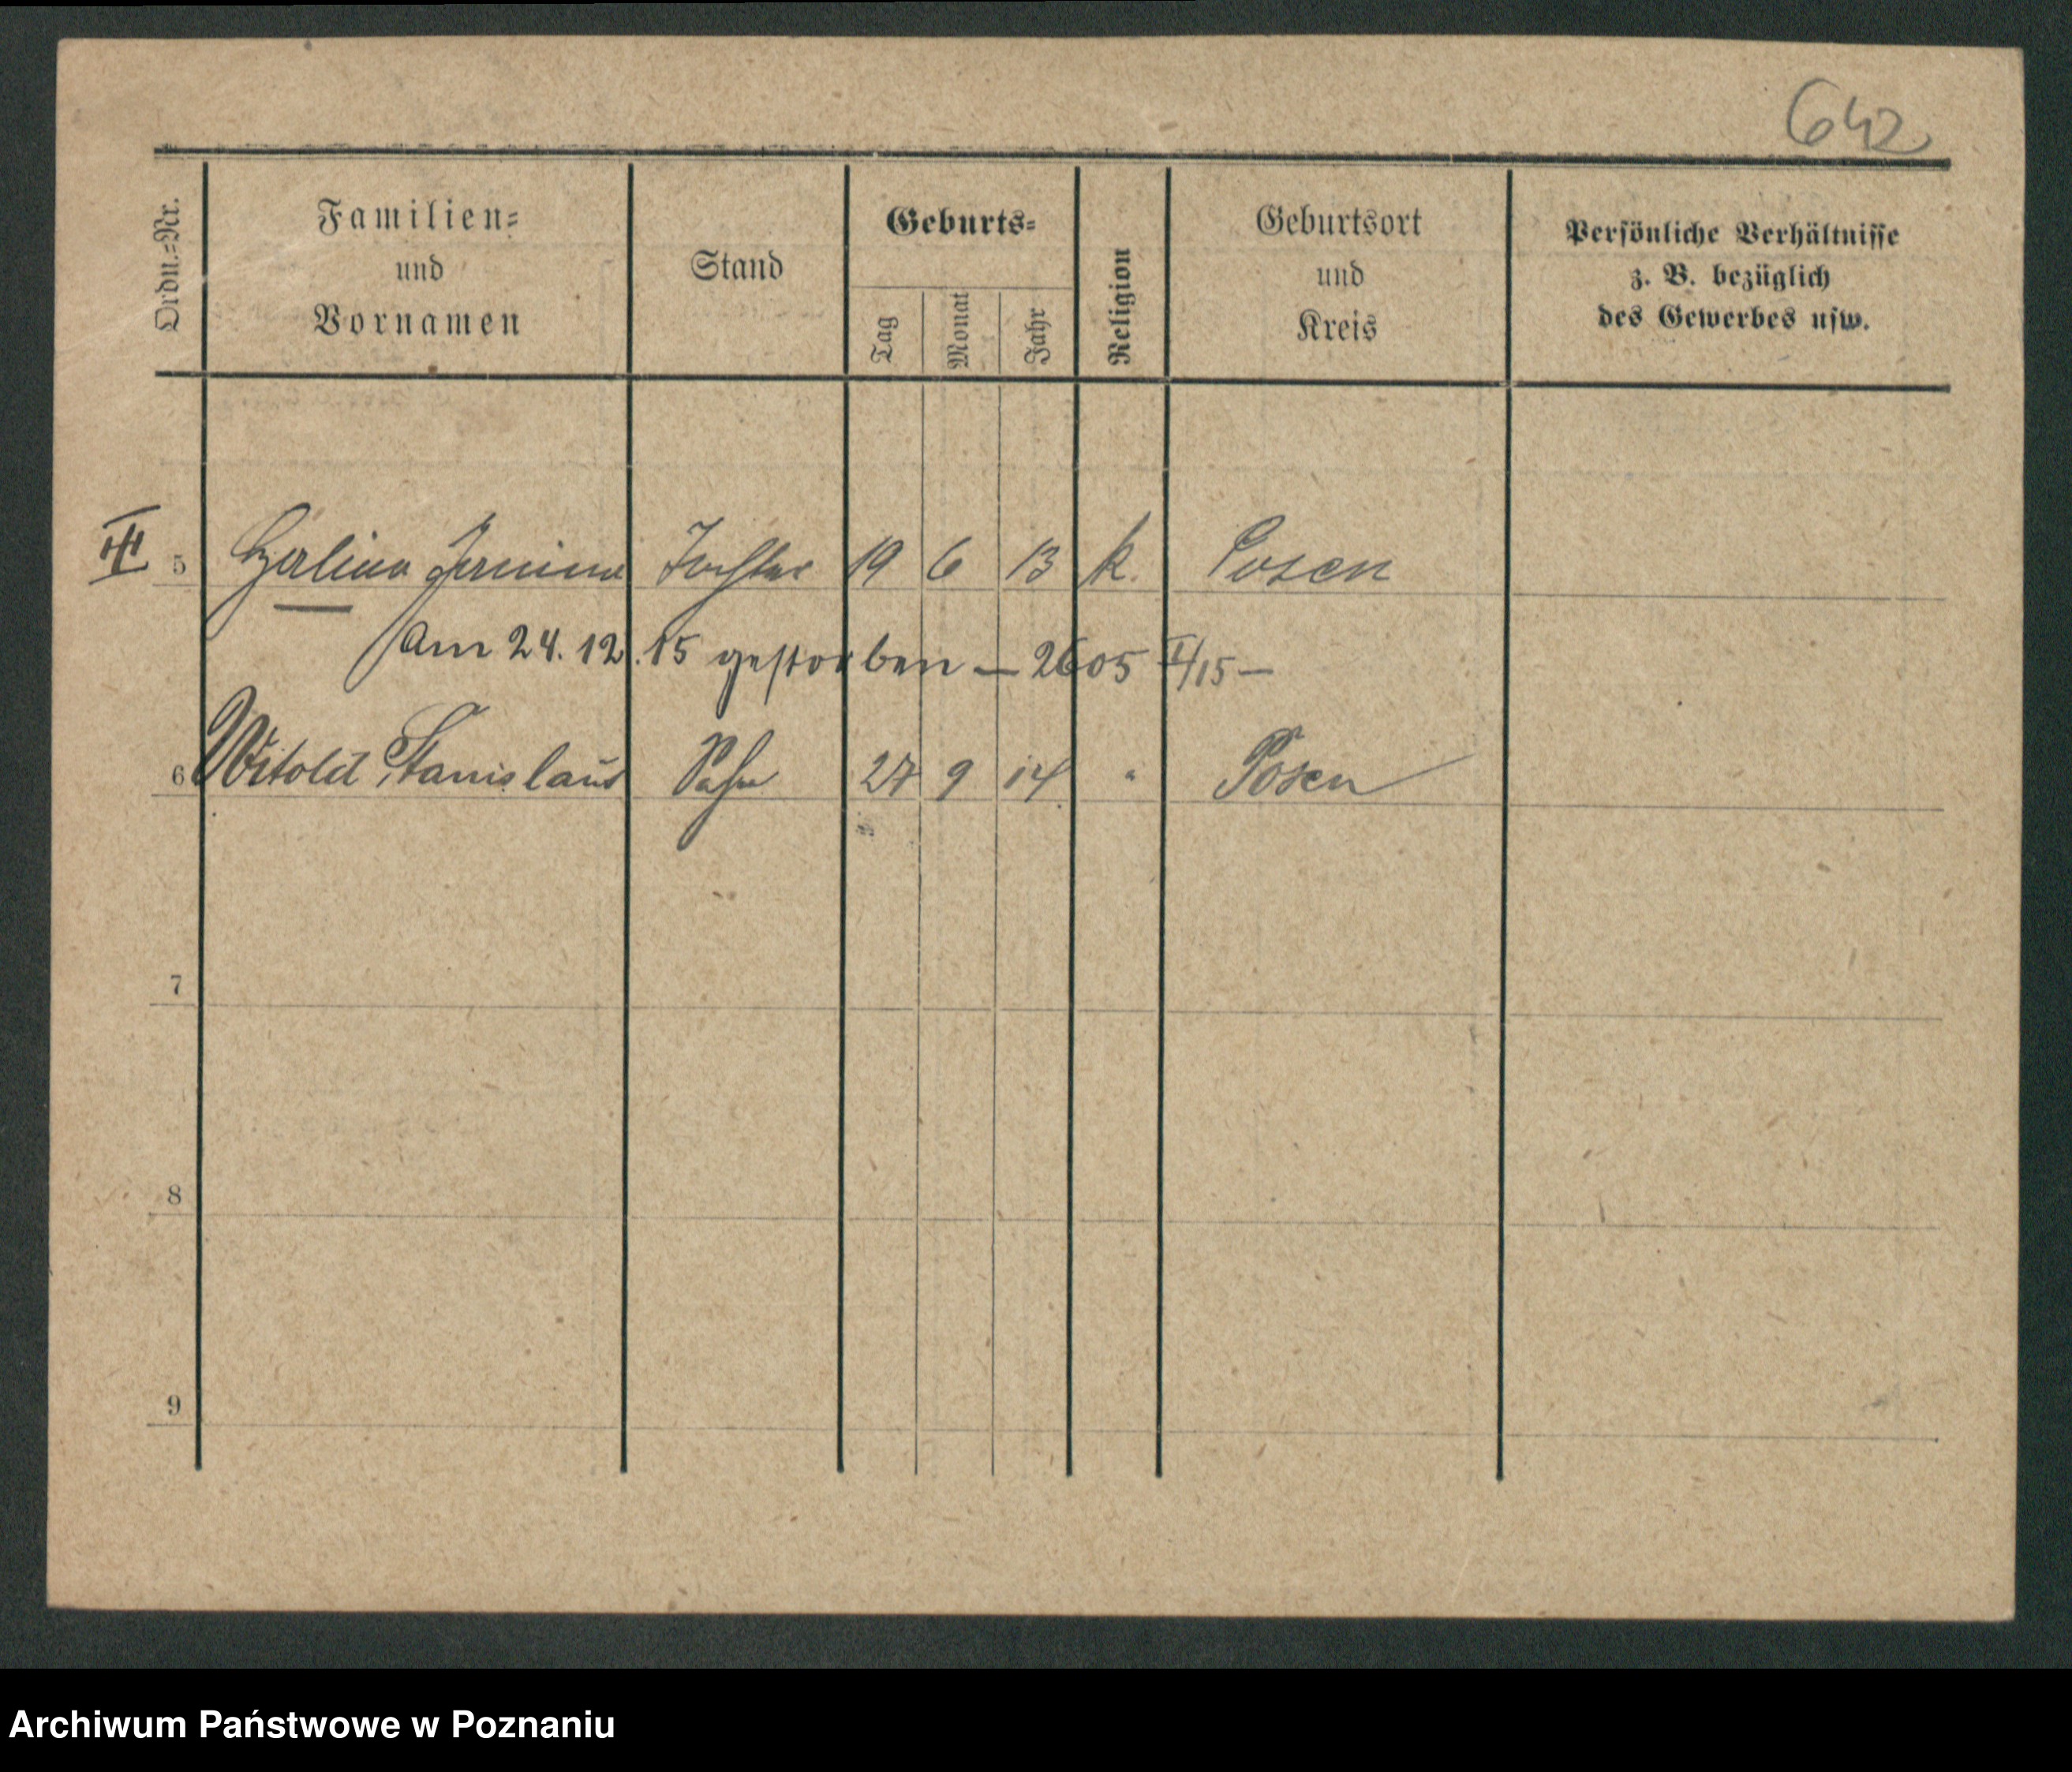 642
Ordn.=Nr.
Familien=
und
Vornamen
Stand
Geburts=
Tag
Monat
Jahr
Religion
Geburtsort
und
Kreis
Persönliche Verhältnisse
z. B. bezüglich
des Gewerbes usw.
5 Halina Janina Tochter 19 6 13 k. Posen
Am 24.12.15 gestorben — 2605 II/15 —
6 Witold Stanislaus Sohn 27 9 14 " Posen
7
8
9
Archiwum Państwowe w Poznaniu